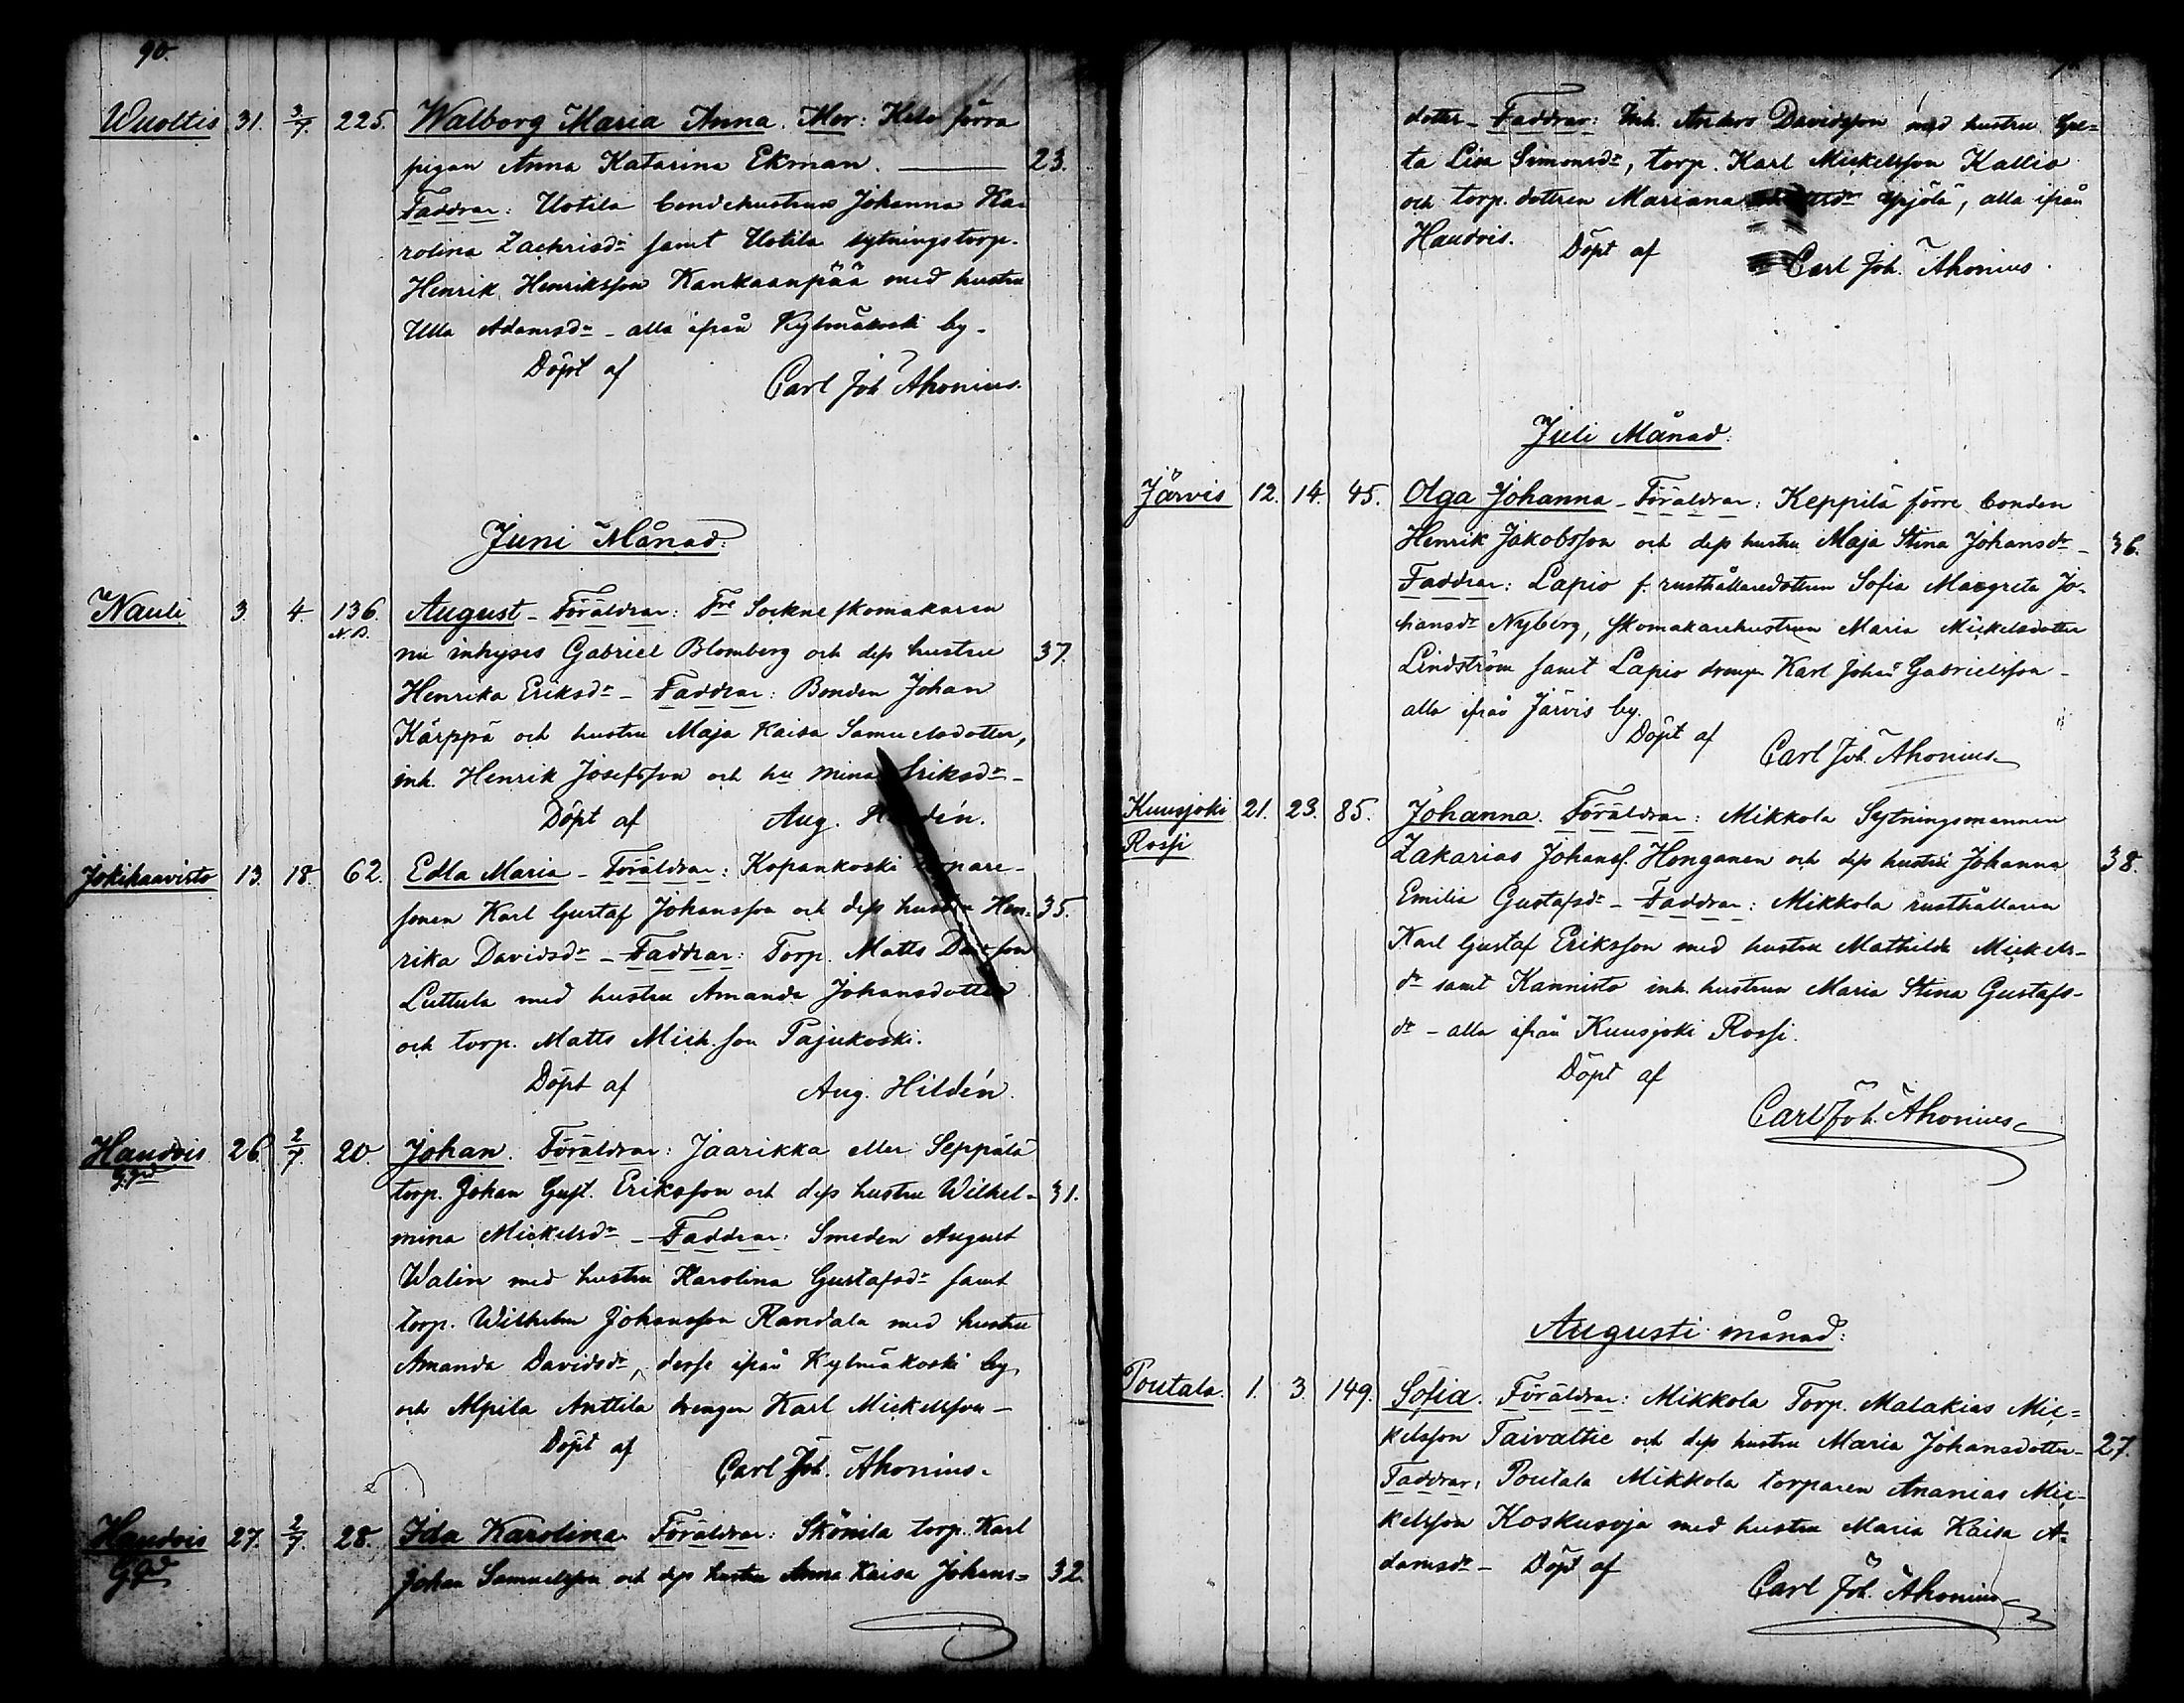 90.
Wuoltis 31. 3/7. 225. Walborg Maria Anna. Mor: Kelo förra
pigan Anna Katarina Ekman. 23.
Faddrar: Uotila bondehustrun Johanna Ka-
rolina Zachrisdr samt Uotila sytningstorp.
Henrik Henriksson Kankaanpää med hustru
Ulla Adamsdr - alla ifrån Kylmäkoski by.
Döpt af Carl Joh Ahonius.
Juni Månad:
Nauli 3. 4. 136. August - Föräldrar: Fre Sockneskomakaren
N.B.
nu inhyses Gabriel Blomberg och dess hustru 37.
Henrika Eriksdr - Faddrar: Bonden Johan
Kärppä och hustru Maja Kaisa Samuelsdotter,
inh. Henrik Josefsson och hu Mina Eriksdr -
Döpt af Aug. Hildén.
Jokihaavisto 13. 18. 62. Edla Maria - Föräldrar: Kopankoski torpare-
sonen Karl Gustaf Johansson och dess hustru Hen- 35.
rika Davidsdr - Faddrar: Torp. Matts
Luttula med hustru Amanda Johansdotter
och torp. Matts Mich.son Pajukoski.
Döpt af Aug. Hildén.
Haudois 26. 2/7. 20. Johan. Föräldrar: Jaarikka eller Seppälä
Ggd
torp. Johan Gust. Eriksson och dess hustru Wilhel- 31.
mina Mickelsdr - Faddrar: Smeden August
Walin med hustru Karolina Gustafsdr samt
torp. Wilhelm Johansson Randala med hustru
Amanda Davidsdr, desse ifrån Kylmäkoski by,
och Alpila Anttila drengen Karl Mickelsson -
Döpt af Carl Joh. Ahonius.
Haudois 27. 2/7. 28. Ida Karolina. Föräldrar: Skönilä torp. Karl
Ggd
Johan Samuelsson och dess hustru Anna Kaisa Johans- 32.
dotter - Faddrar: Inh. Anders Davidsson med hustru Gre-
ta Lisa Simonsdr, torp. Karl Mickelsson Kallio
och torp. dottren Mariana Ypjölä, alla ifrån
Haudois. Döpt af Carl Joh. Ahonius.
Juli Månad:
Järvis 12. 14. 45. Olga Johanna - Föräldrar: Keppilä förre bonden
Henrik Jakobsson och dess hustru Maja Stina Johansdr - 36.
Faddrar: Lapio f. rusthållaredottren Sofia Margreta Jo-
hansdr Nyberg, skomakarehustrun Maria Mickelsdotter
Lindström samt Lapio drengen Karl Johan Gabrielsson -
alla ifrån Järvis by.
Döpt af Carl Joh. Ahonius.
Kuusjoki 21. 23. 85. Johanna. Föräldrar: Mikkola Sytningsmannen
Rossi
Zakarias Johanss. Honganen och dess hustru Johanna 38.
Emilia Gustafsdr - Faddrar: Mikkola rusthållaren
Karl Gustaf Eriksson med hustru Mathilda Mickels-
dr samt Kannisto inh. hustrun Maria Stina Gustafs-
dr - alla ifrån Kuusjoki Rossi.
Döpt af
Carl Joh. Ahonius
Augusti månad:
Poutala. 1. 3. 149. Sofia. Föräldrar: Mikkola Torp. Malakias Mic-
kelsson Taivattie och dess hustru Maria Johansdotter - 27.
Faddrar: Poutala Mikkola torparen Ananias Mic-
kelsson Koskusoja med hustru Maria Kaisa A-
damsdr - Döpt af
Carl Joh. Ahonius